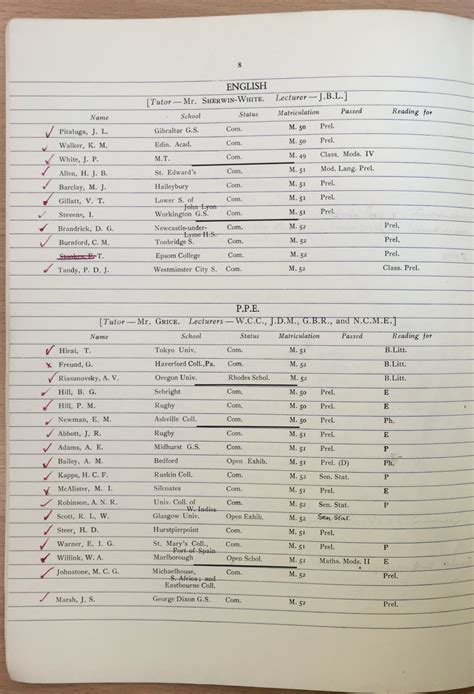 8
ENGLISH
[Tutor — Mr. SHERWIN-WHITE. Lecturer — J.B.L.]
Name School Status Matriculation Passed Reading for
Pitaluga, J. L. Gibraltar G.S. Com. M. 50 Prel.
Walker, K. M. Edin. Acad. Com. M. 50 Prel.
White, J. P. M.T. Com. M. 49 Class, Mods. IV
Allen, H. J. B. St. Edward's Com. M. 51 Mod. Lang. Prel.
Barclay, M. J. Haileybury Com. M. 51 Prel.
Gillatt, V. T. Lower S. of John Lyon Com. M. 51 Prel.
Stevens, I. Workington G.S. Com. M. 51 Prel.
Brandrick, D. G. Newcastle-under-Lyme H.S. Com. M. 52 Prel.
Burnford, C. M. Tonbridge S. Com. M. 52 Prel.
T. Epsom College Com. M. 52
Tandy, P. D. J. Westminster City S. Com. M. 52 Class. Prel.
P.P.E.
[Tutor — Mr. GRICE. Lecturers — W.C.C., J.D.M., G.B.R., and N.C.M.E.]
Name School Status Matriculation Passed Reading for
Hirai, T. Tokyo Univ. Com. M. 51 B.Litt.
Freund, G. Haverford Coll., Pa. Com. M. 51 B.Litt.
Riasanovsky, A. V. Oregon Univ. Rhodes Schol. M. 52 B.Litt.
Hill, B. G. Sebright Com. M. 50 Prel. E
Hill, P. M. Rugby Com. M. 50 Prel. E
Newman, E. M. Ashville Coll. Com. M. 50 Prel. Ph.
Abbott, J. R. Rugby Com. M. 51 Prel. E
Adams, A. E. Midhurst G.S. Com. M. 51 Prel. P
Bailey, A. M. Bedford Open Exhib. M. 51 Prel. (D) Ph.
Kapps, H. C. F. Ruskin Coll. Com. M. 52 Sen. Stat. P
McAlister, M. I. Silcoates Com. M. 51 Prel. E
Robinson, A. N. R. Univ. Coll. of W. Indies Com. M. 52 Sen. Stat. P
Scott, R. L. W. Glasgow Univ. Open Exhib. M. 52 Sen. Stat.
Steer, H. D. Hurstpierpoint Com. M. 51 Prel.
Warner, E. I. G. St. Mary's Coll., Port of Spain Com. M. 51 Prel. P
Willink, W. A. Marlborough Open Schol. M. 51 Maths. Mods. II E
Johnstone, M. C. G. Michaelhouse, S. Africa; and Eastbourne Coll. Com. M. 52 Prel.
Marsh, J. S. George Dixon G.S. Com. M. 52 Prel.